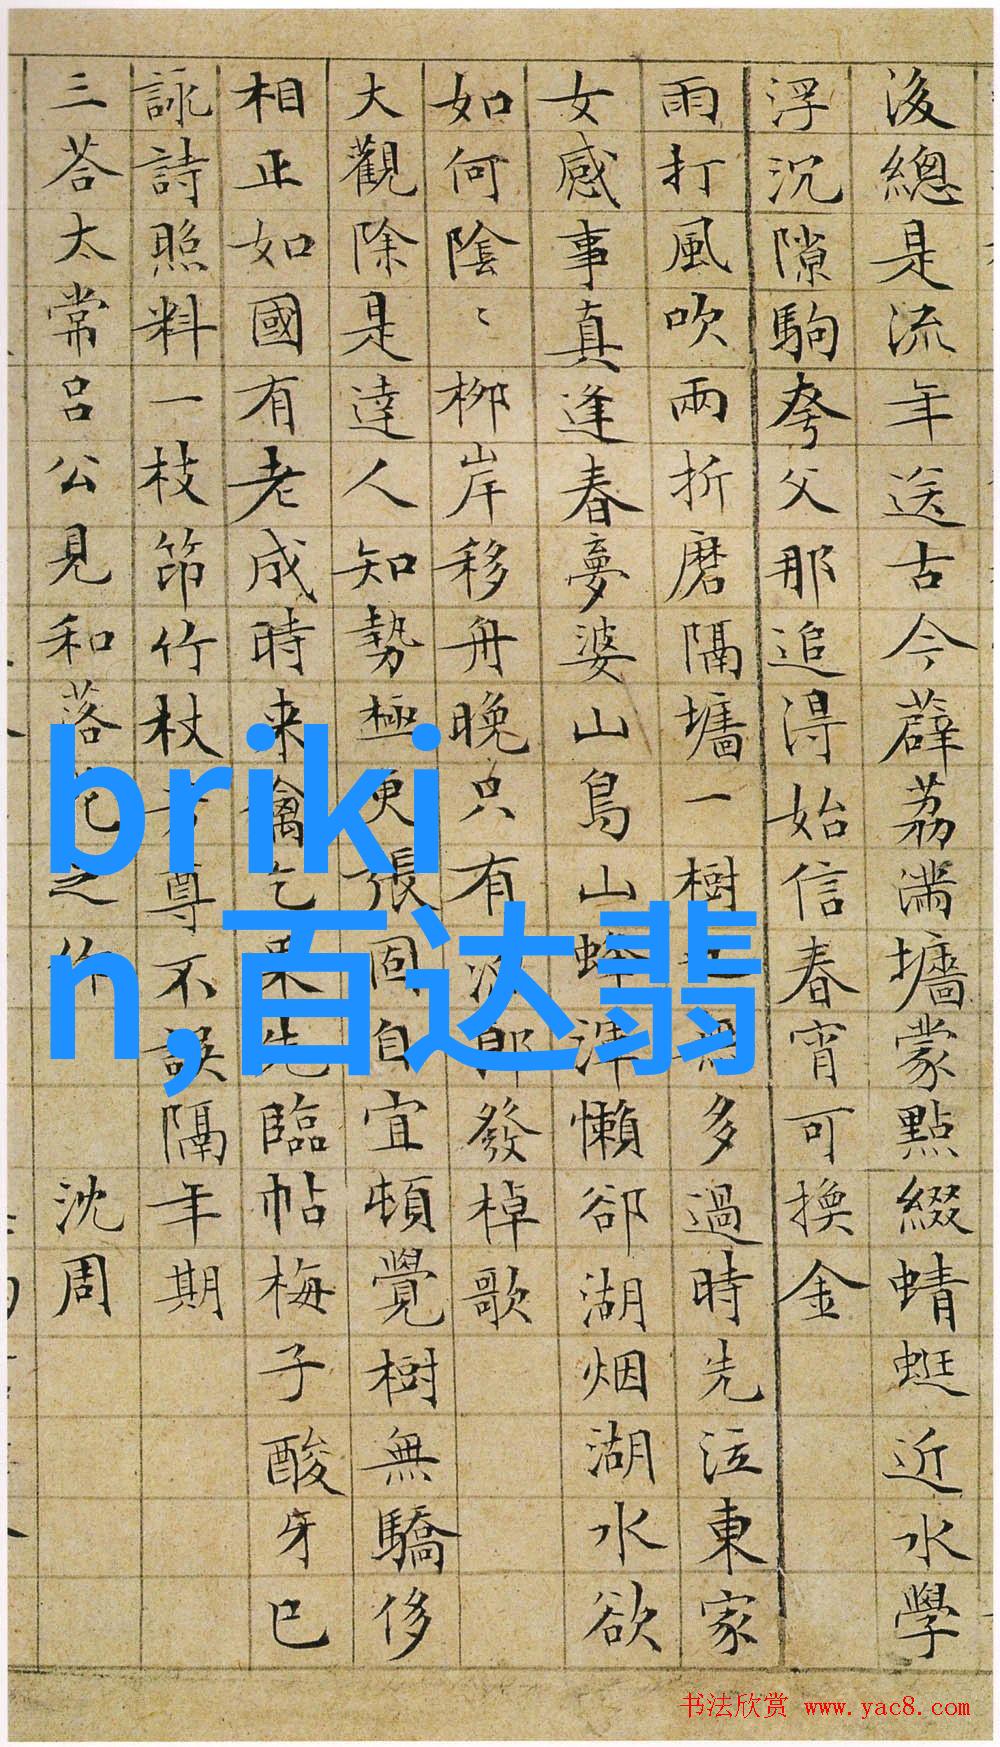 後總是流年送古今薜荔滿墻蒙點綴蜻蜓近水學
浮沉隙駒夸父那追得始信春宵可換金
雨打風吹兩折磨隔墻一樹多過時先泣東家
女感事真逢春夢婆山鳥山蜂渾懶卻湖烟湖水欲
如何陰〻柳岸移舟晚只有漁郎發棹歌
大觀除是達人知勢極更張固自宜頓覺樹無驕侈
相正如國有老成時来禽乞果先臨帖梅子酸牙已
詠詩照料一枝笻竹杖尊不誤隔年期
三荅太常吕公見和落花之作 沈周
briki
n,百达翡
书法欣赏 www.yac8.com